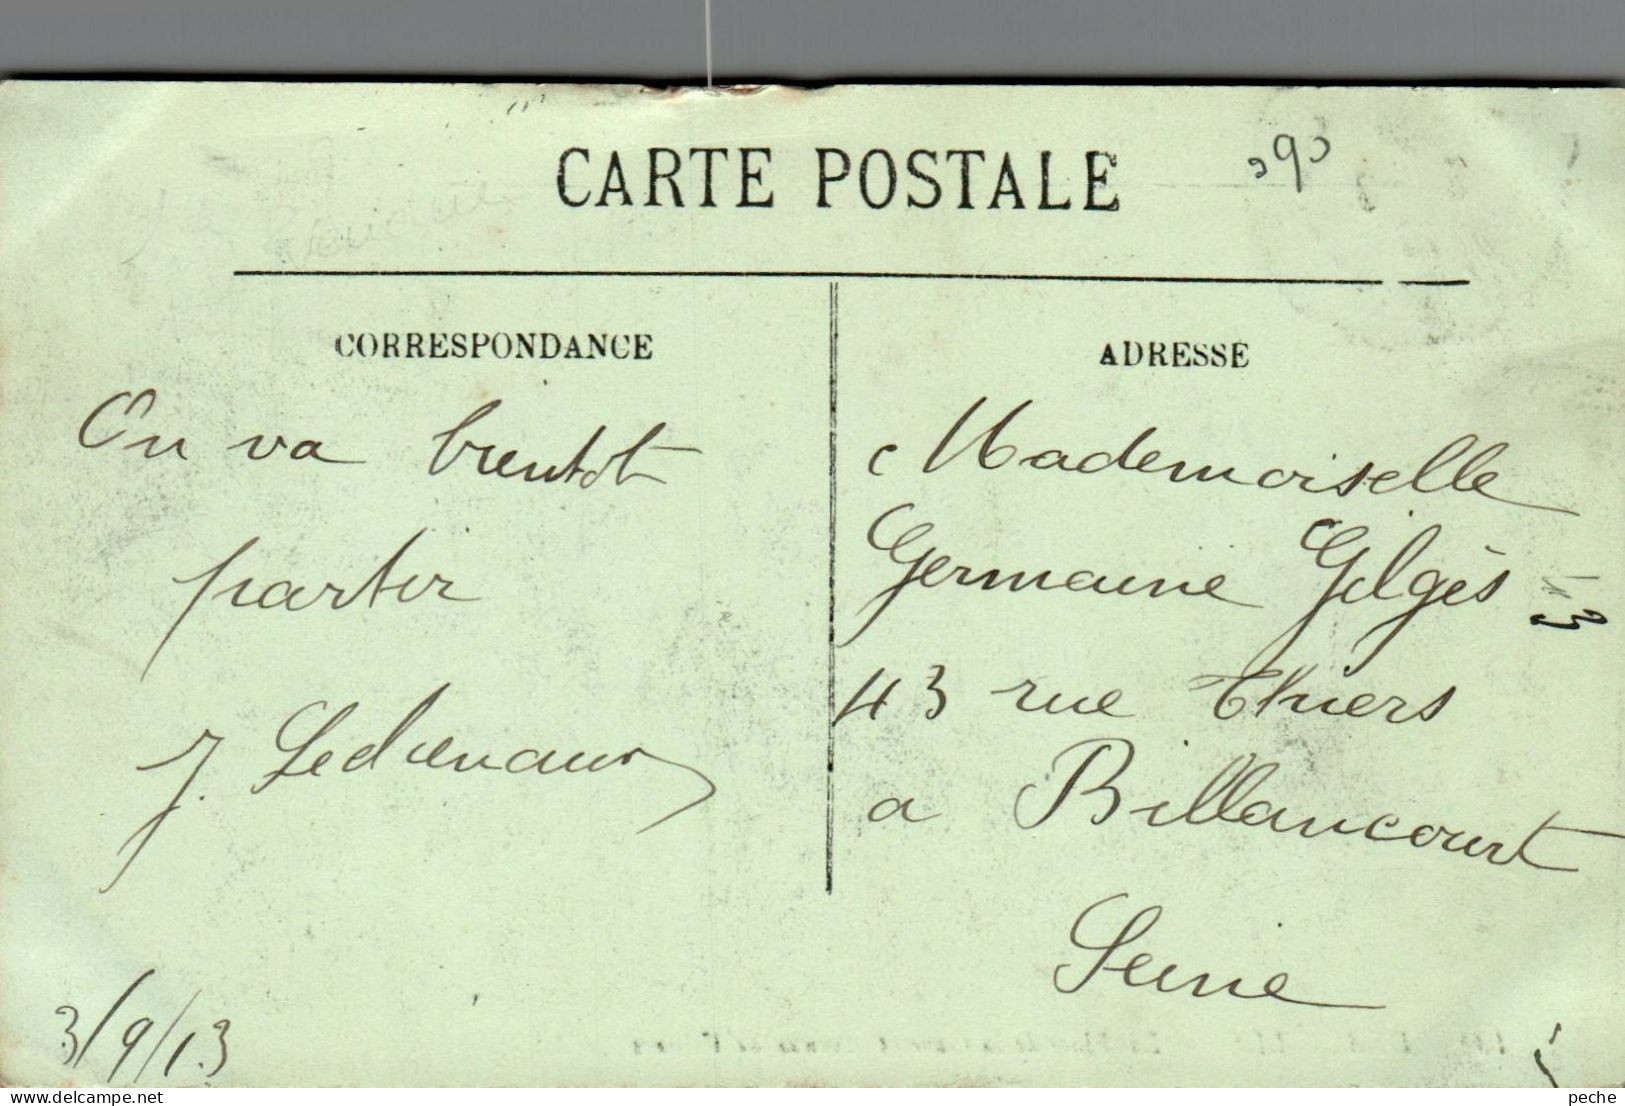 CARTE POSTALE
CORRESPONDANCE
On va bientot
partir
3/9/13
ADRESSE
Mademoiselle
Germaine Gilgès
43 rue Thiers
a Billancourt
Seine
peche